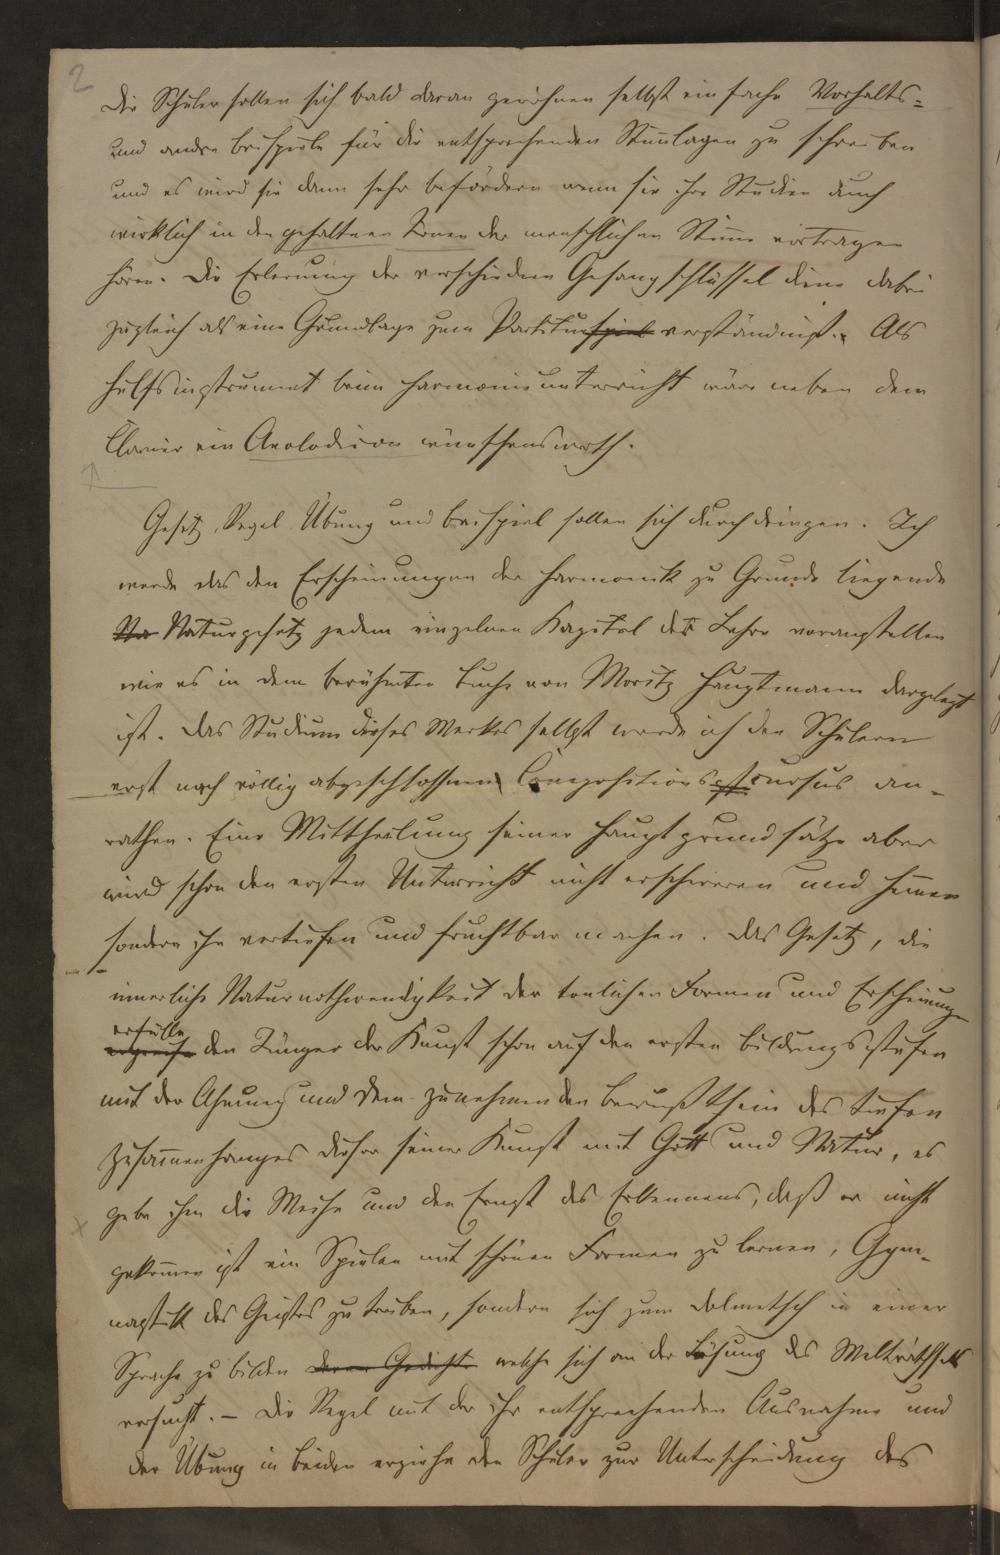 2
Die Schüler sollen sich bald daran gewöhnen selbst einfache Vorhalts-
und andre Beispiele für die entsprechenden Stimlagen zu schreiben
und es wird sie dann sehr befördern wenn sie ihre Studien auch
wirklich in den gehaltnen Tönen der menschlichen Stime vortragen
hören. Die Erlernung der verschiednen Gesangschlüssel diene dabei
zugleich als eine Grundlage zum Partiturspiel verständniß. Als
Hülfsinstrument beim Harmonieunterricht wäre neben dem
Clavier ein Aeolodicon wünschenswerth.
Gesetz, Regel Übung und Beispiel sollen sich durchdringen. Ich
werde das den Erscheinungen der Harmonik zu Grunde liegende
Na Naturgesetz jedem einzelnen Kapitel der Lehre voranstellen
wie es in dem berühmten Buche von Moritz Hauptmann dargelegt
ist. Das Studium dieses Werkes selbst werde ich den Schülern
erst nach völlig abgeschlossnem Compositionscursus an-
rathen. Eine Mittheilung seiner Hauptgrundsätze aber
wird schon den ersten Unterricht nicht erschweren und hemen
sondern ihn vertiefen und fruchtbar machen. Das Gesetz, die
innerliche Naturnothwendigkeit der tonlichen Formen und Erscheinungen
erfülle
ergreife den Jünger der Kunst schon auf den ersten Bildungsstufen
mit der Ahnung und dem zunehmenden Bewußtsein des tiefen
Zusamenhanges dieser seiner Kunst mit Gott und Natur, es
gebe ihm die Weihe und den Ernst des Erkennens, daß er nicht
gekomen ist ein Spielen mit schönen Formen zu lernen, Gym-
nastik des Geistes zu treiben, sondern sich zum Dolmetsch in einer
Sprache zu bilden deren Gedichte welche sich an der Lösung des Welträthsels
versucht. – Die Regel mit der ihr entsprechenden Ausnahme und
der Übung in beiden erziehe den Schüler zur Unterscheidung des